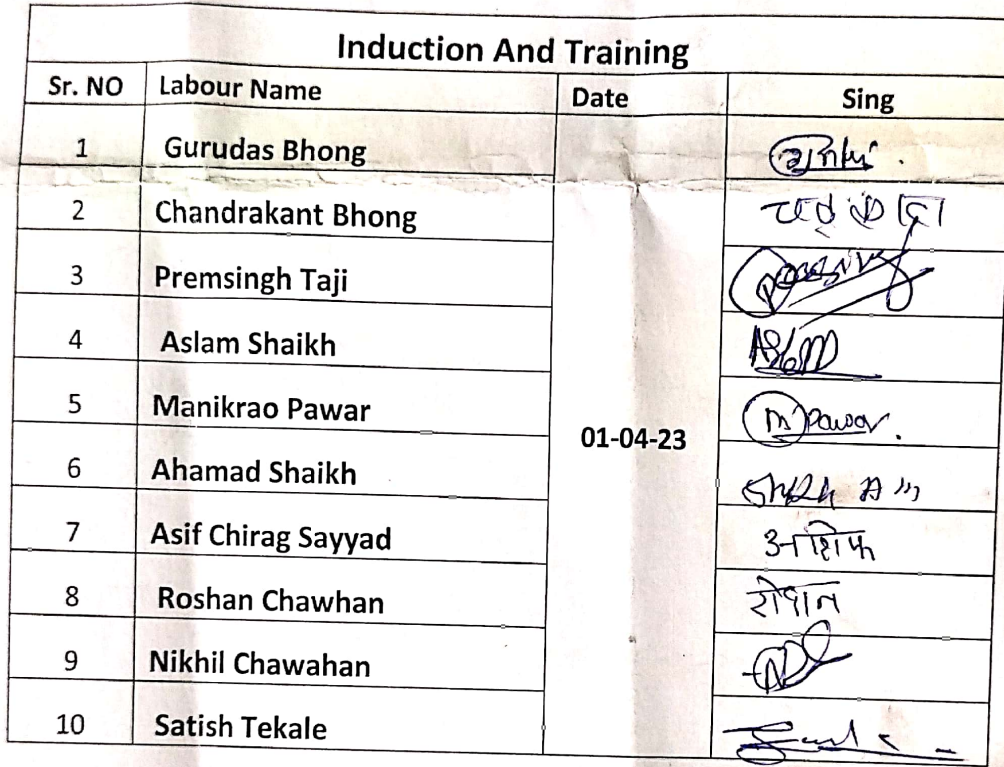 Induction And Training
Sr. NO Labour Name Date Sing
1 Gurudas Bhong
2 Chandrakant Bhong
3 Premsingh Taji
4 Aslam Shaikh Aslam
5 Manikrao Pawar M Pawar.
01-04-23
6 Ahamad Shaikh
7 Asif Chirag Sayyad आशिफ
8 Roshan Chawhan रोशान
9 Nikhil Chawahan
10 Satish Tekale